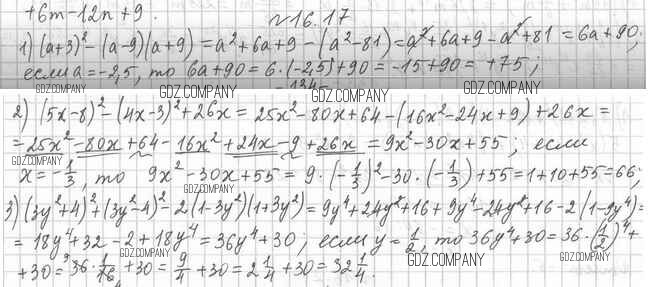 +6m-12n+9.
№16.17
1) (a+3)²-(a-9)(a+9)=a²+6a+9-(a²-81)=a²+6a+9-a²+81=6a+90;
если a=-2,5, то 6a+90=6·(-2,5)+90=-15+90=+75;
GDZ.COMPANY GDZ.COMPANY GDZ.COMPANY
GDZ.COMPANY
2) (5x-8)²-(4x-3)²+26x=25x²-80x+64-(16x²-24x+9)+26x=
=25x²-80x+64-16x²+24x-9+26x=9x²-30x+55; если
GDZ.COMPANY GDZ.COMPANY
x=-1/3, то 9x²-30x+55=9·(-1/3)²-30·(-1/3)+55=1+10+55=66;
GDZ.COMPANY
3) (3y²+4)²+(3y²-4)²-2(1-3y²)(1+3y²)=9y⁴+24y²+16+9y⁴-24y²+16-2(1-9y⁴)=
=18y⁴+32-2+18y⁴=36y⁴+30; если y=1/2, то 36y⁴+30=36·(1/2)⁴+
GDZ.COMPANY GDZ.COMPANY
+30=36·1/16+30=9/4+30=2 1/4+30=32 1/4.